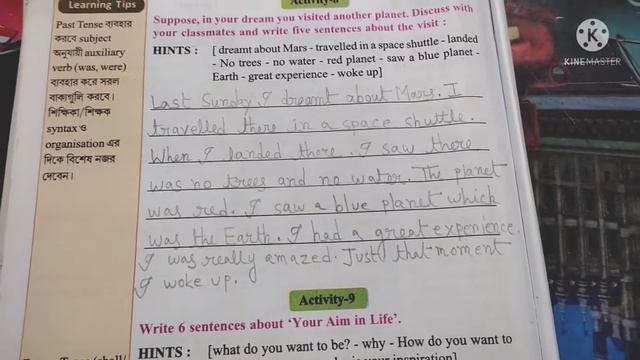 Learning Tips
Past Tense ব্যবহার
করবে subject
অনুযায়ী auxiliary
verb (was, were)
ব্যবহার করে সরল
বাক্যগুলি করবে।
শিক্ষিকা/শিক্ষক
syntax ও
organisation এর
দিকে বিশেষ নজর
দেবেন।
Suppose, in your dream you visited another planet. Discuss with
your classmates and write five sentences about the visit :
HINTS : [ dreamt about Mars - travelled in a space shuttle - landed
- No trees - no water - red planet - saw a blue planet -
Earth - great experience - woke up]
Last Sunday I dreamt about Mars. I
travelled there in a space shuttle.
When I landed there, I saw there
was no trees and no water. The planet
was red. I saw a blue planet which
was the Earth. I had a great experience.
I was really amazed. Just that moment
I woke up.
Activity-9
Write 6 sentences about 'Your Aim in Life'.
HINTS : [what do you want to be? - why - How do you want to
inspiration]
K
KINEMASTER